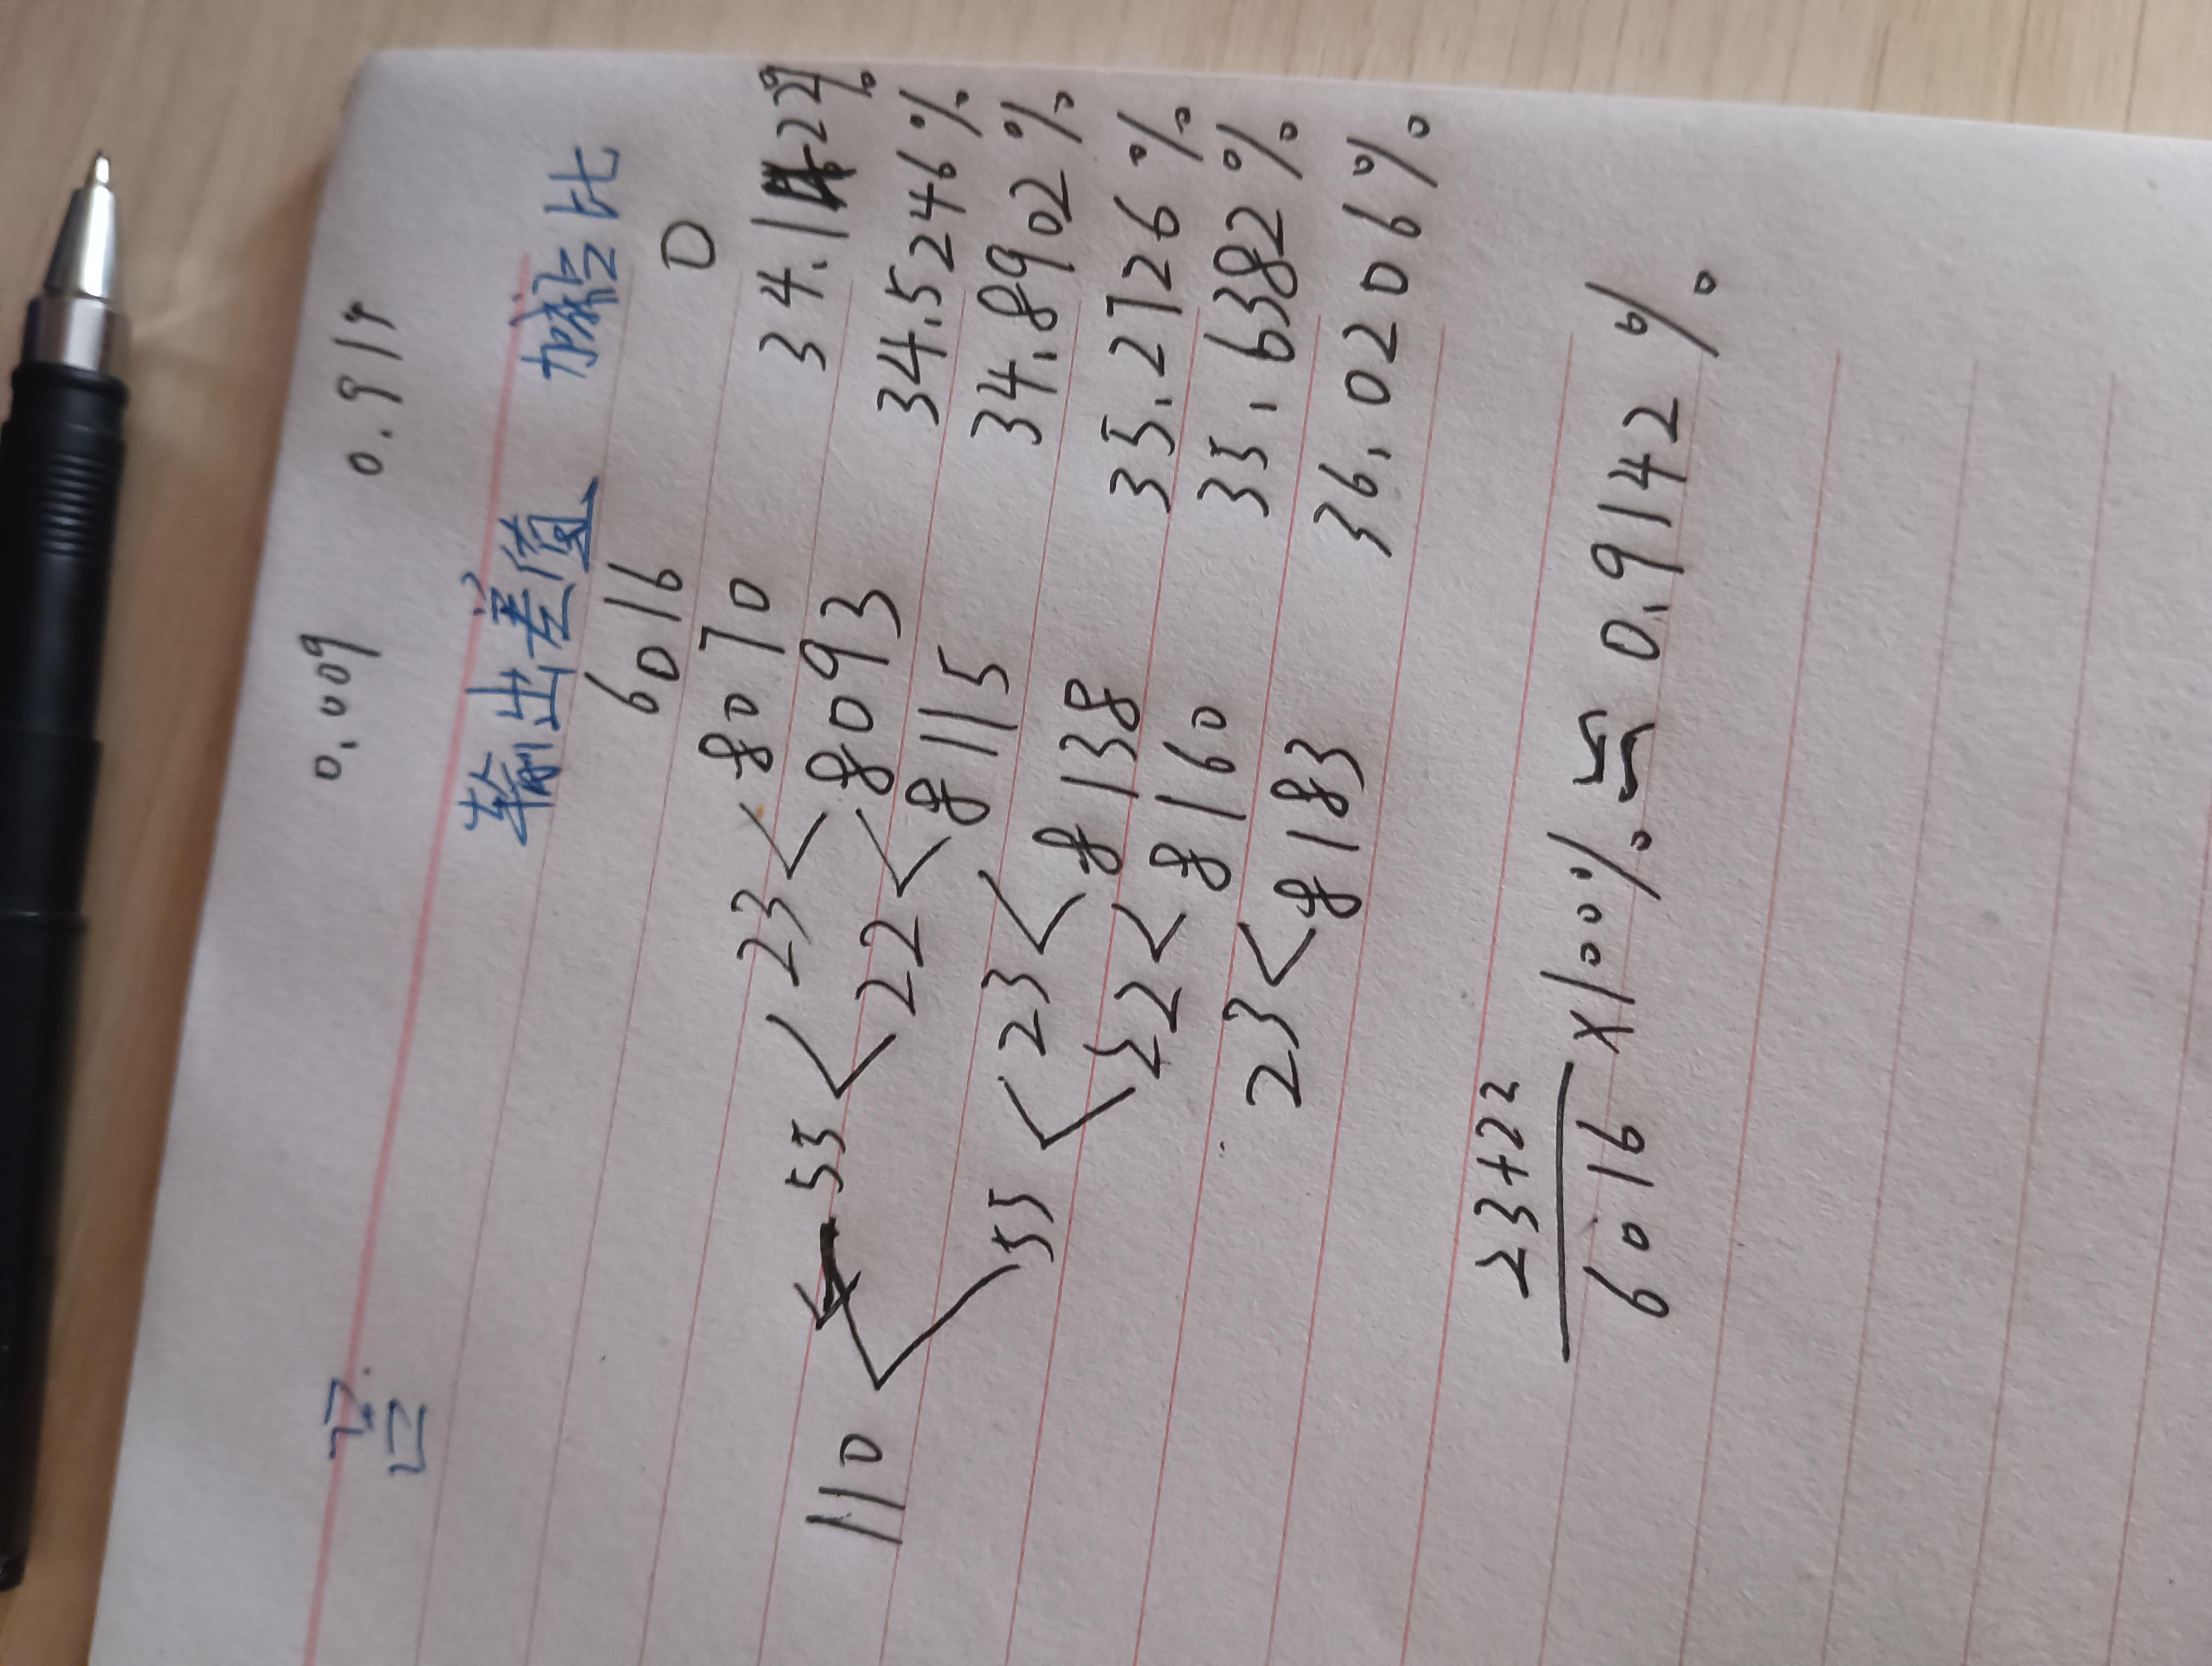 0.009 0.914
输出差值 加点比
6016 0
8070 34.1422%
23 8093 34.5246%
55 22 8115 34.8902%
110 23 8138 35.2726%
55 22 8160 35.6382%
23 8183 36.0206%
23+22
6016 ×100% ≒ 0.9142%